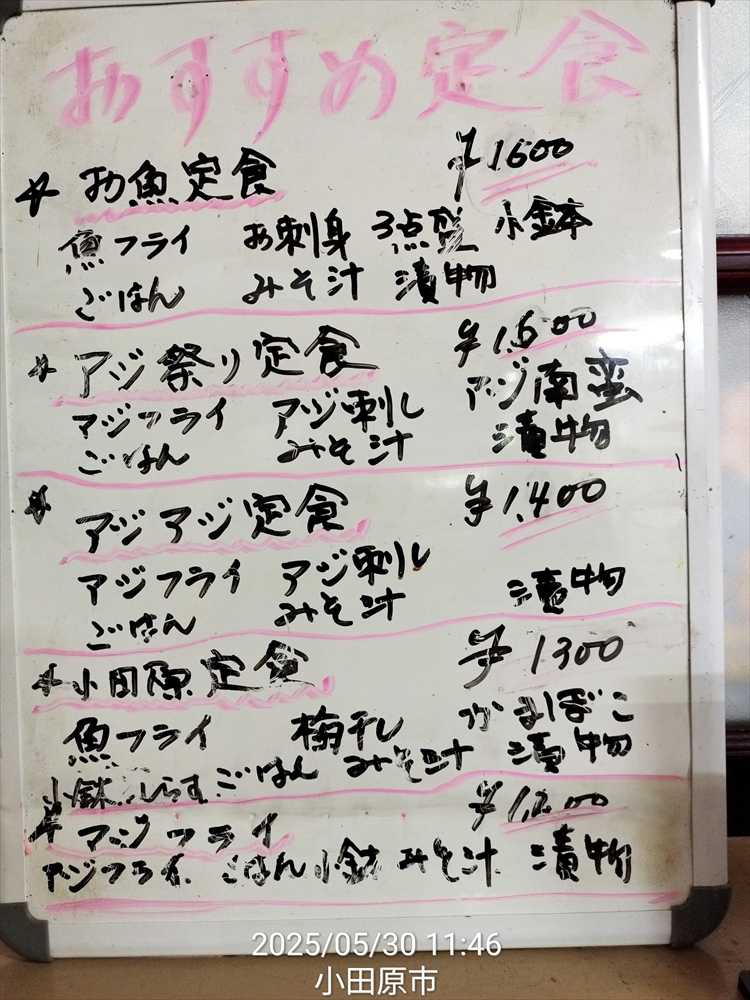 おすすめ定食
☆ お魚定食 ¥1600
魚フライ お刺身 3点盛 小鉢
ごはん みそ汁 漬物
☆ アジ祭り定食 ¥1,600
アジフライ アジ刺し アジ南蛮
ごはん みそ汁 漬物
☆ アジアジ定食 ¥1,400
アジフライ アジ刺し 漬物
ごはん みそ汁
☆ 小田原定食 ¥1300
魚フライ 梅干し かまぼこ
小鉢 しらす ごはん みそ汁 漬物
☆ アジフライ ¥1,200
アジフライ ごはん 小鉢 みそ汁 漬物
2025/05/30 11:46
小田原市